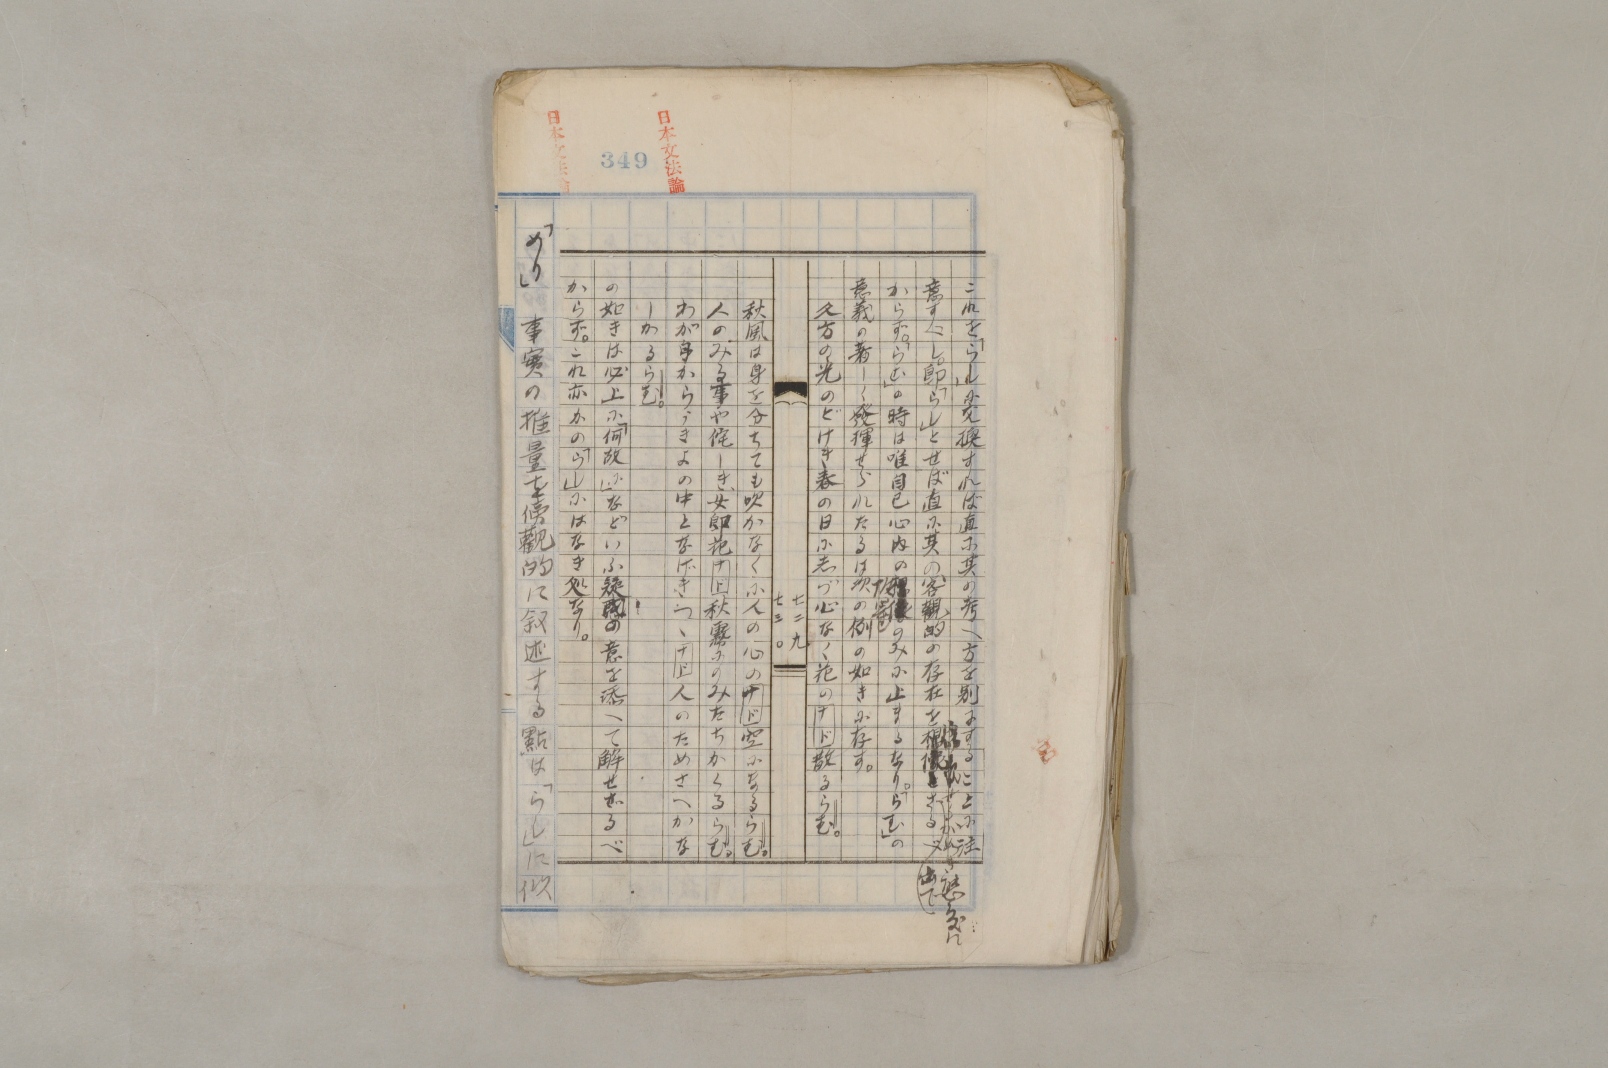 日本文法論
349
日本文法論
これを「らし」に変換すれば直に其の考へ方を別にすることに注
意すべし。即「らし」とせば直に其の客觀的の存在を
からず。「らむ」の時は唯自己心内の のみに止まるなり。「らむ」の
意義の著しく發揮せられたるは次の例の如きに存す。
久方の光のどけき春の日に志づ心なく花のナド散るらむ。
七二九
七三〇
秋風は身を分ちても吹かなくに人の心のナド空になるらむ。
人のみる事や侘しき女郎花ナド秋霧にのみたちかくるらむ。
わが身からうきよの中となげきつゝナド人のためさへかな
しかるらむ。
の如きは必上に「何故に」などいふ疑惑の意を添へて解せざるべ
からず。これ亦かの「らし」にはなき処なり。
「めり」 事實の推量を傍觀的に叙述する點は「らし」に似